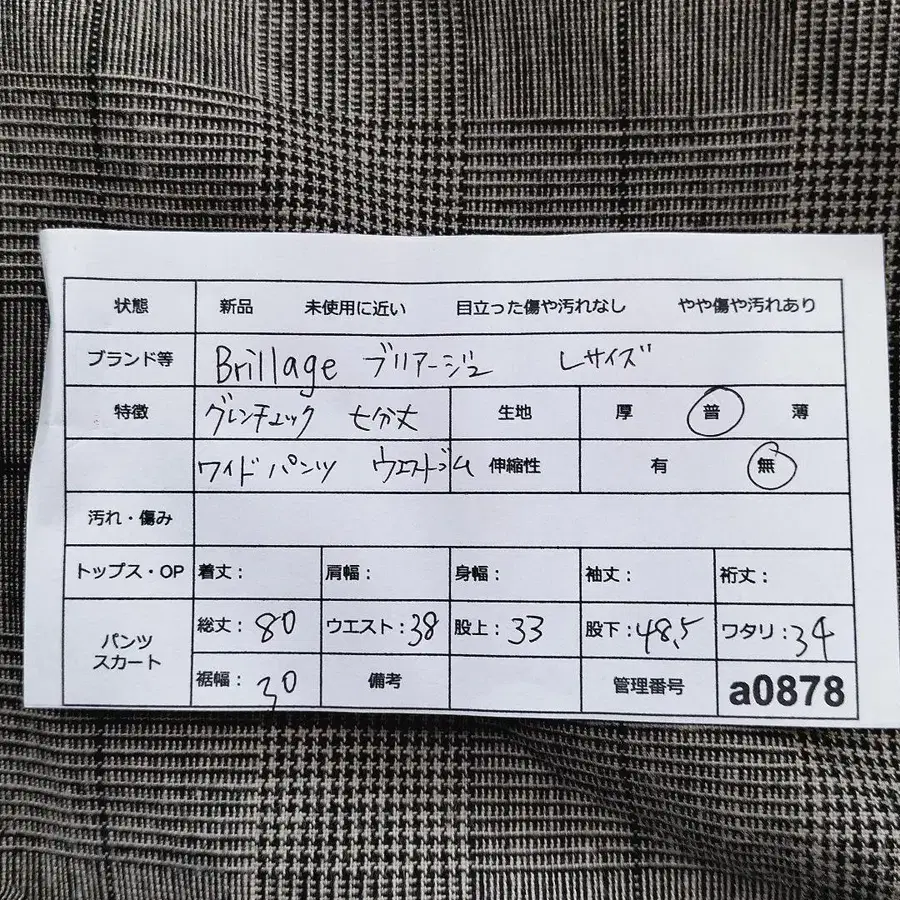 状態 新品 未使用に近い 目立った傷や汚れなし やや傷や汚れあり
ブランド等 Brillage ブリアージュ Lサイズ
特徴 グレンチェック 七分丈 生地 厚 普 薄
ワイドパンツ ウエストゴム 伸縮性 有 無
汚れ・傷み
トップス・OP 着丈: 肩幅: 身幅: 袖丈: 裄丈:
パンツ
スカート
総丈:80 ウエスト:38 股上:33 股下:48.5 ワタリ:34
裾幅:30 備考 管理番号 a0878